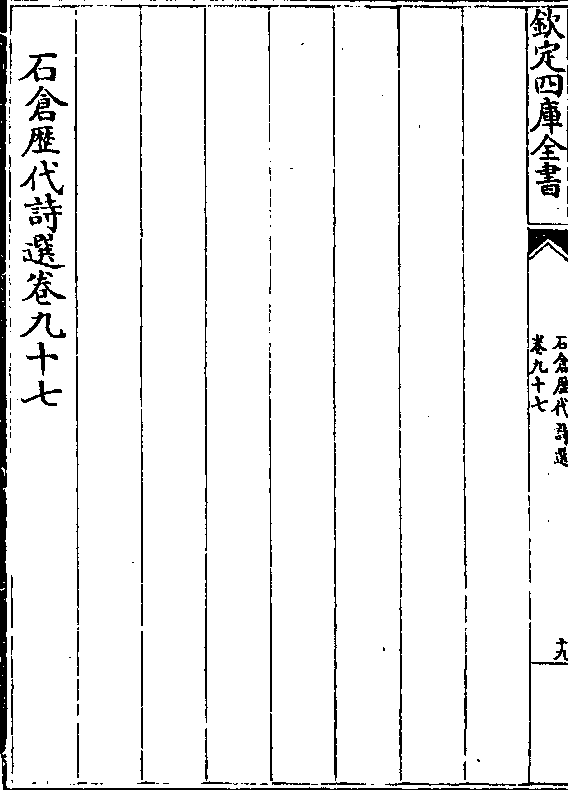 欽定四庫全書
石倉歴代詩選
卷九十七
十九
石倉歴代詩選卷九十七